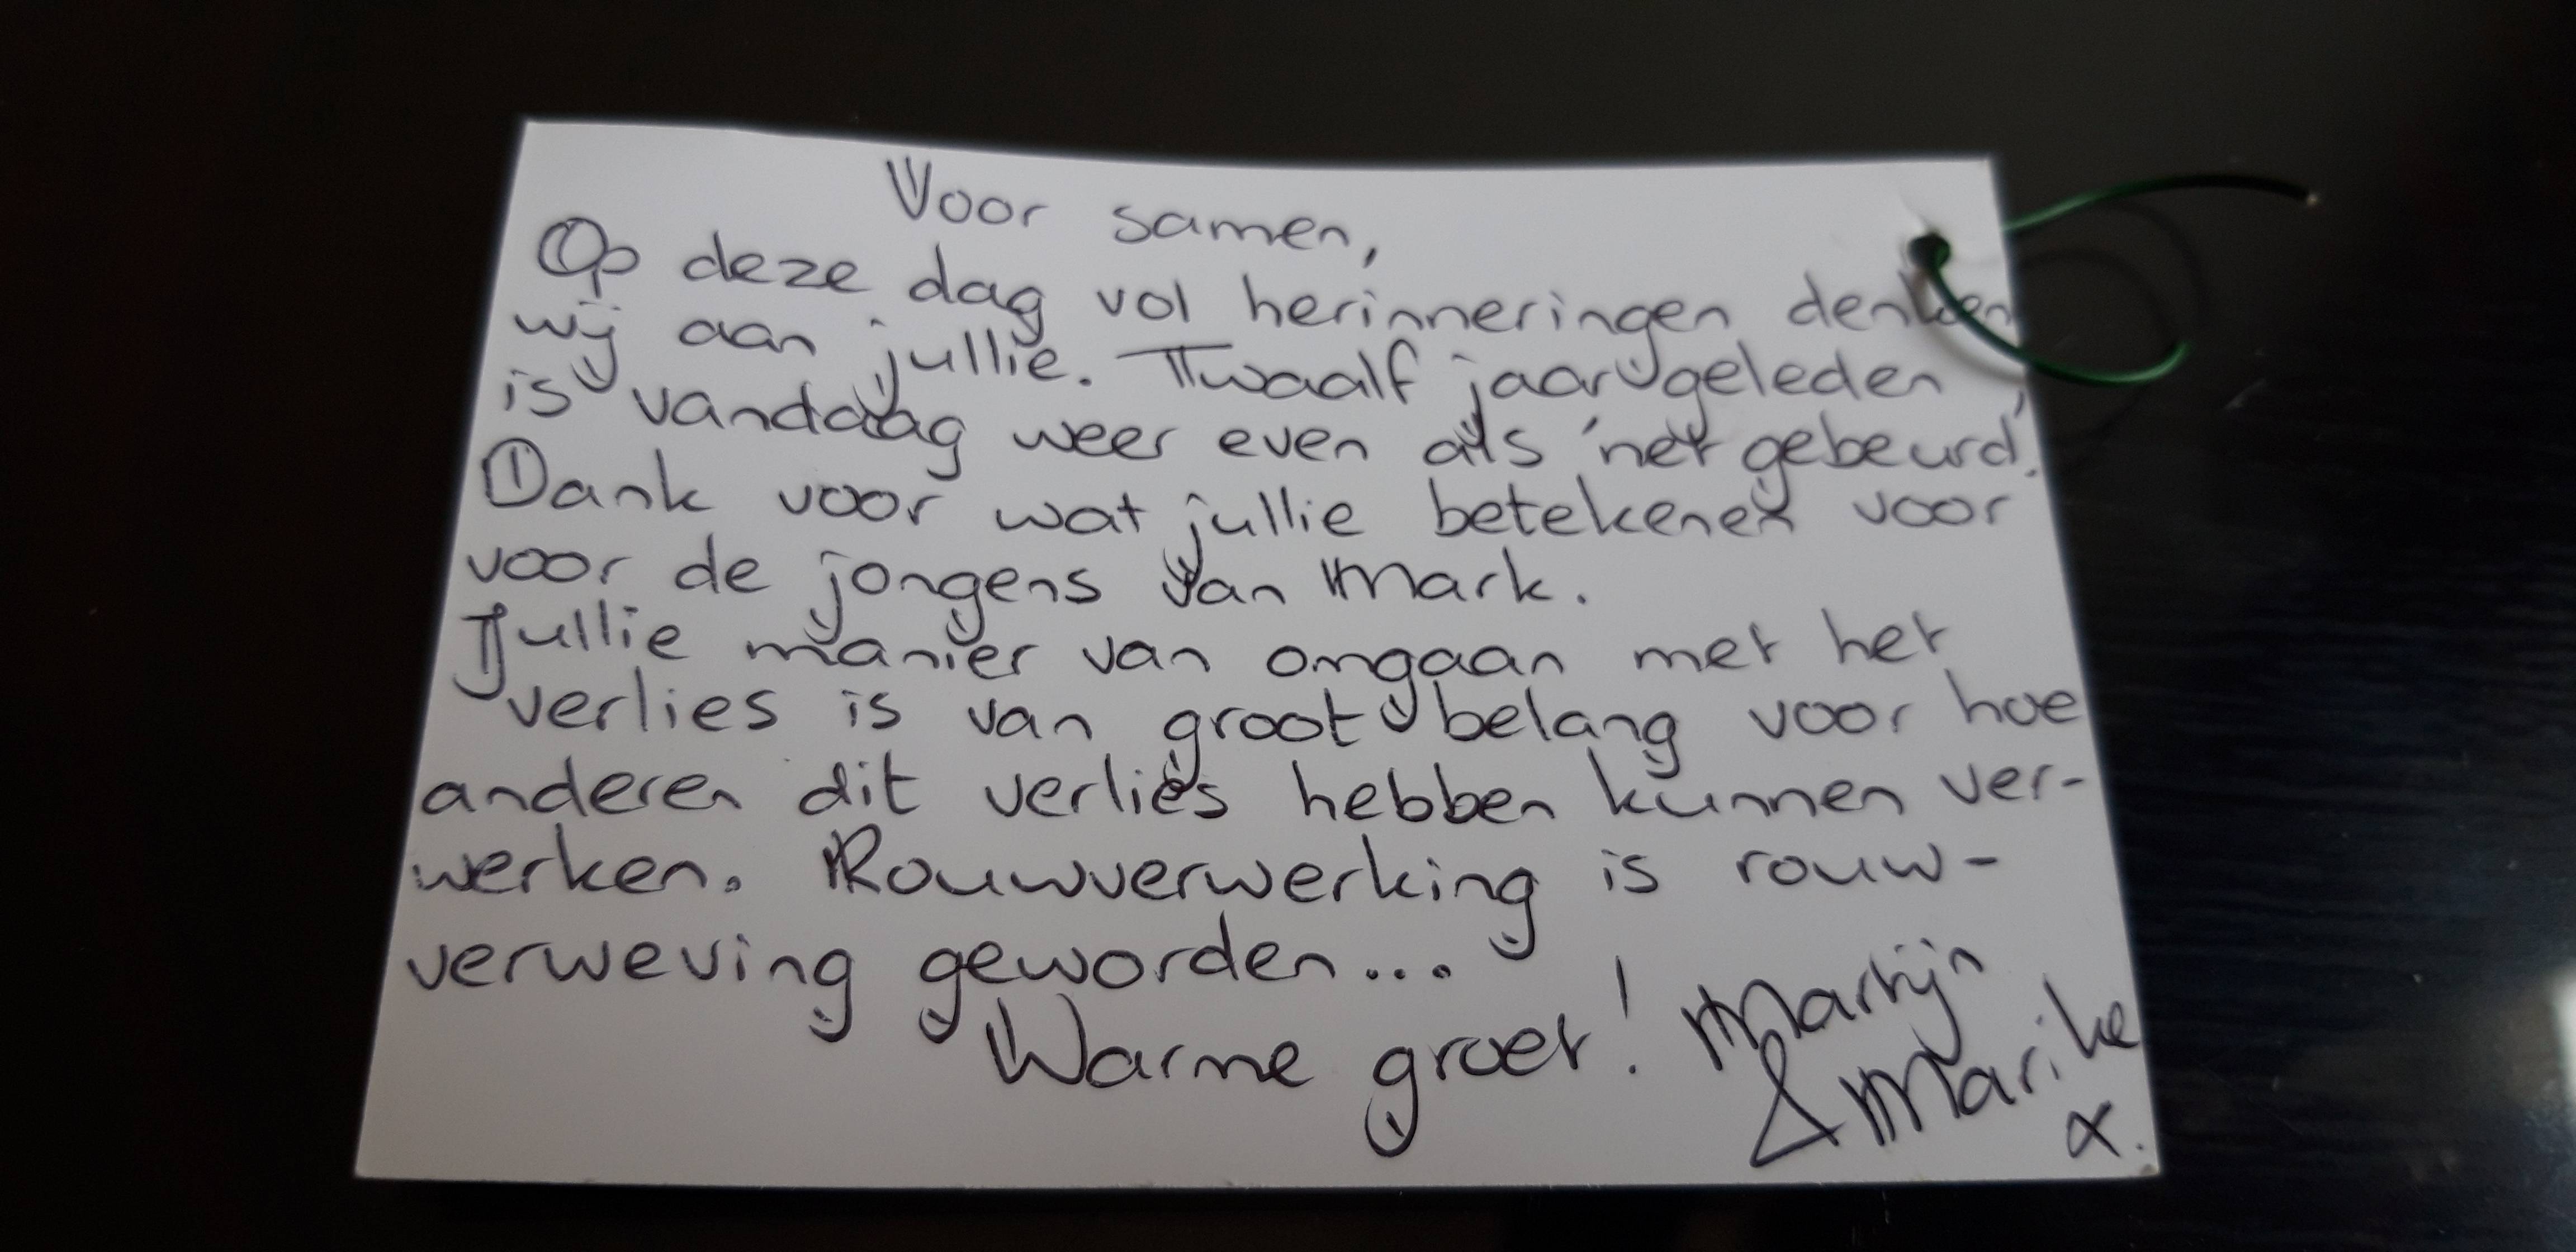 Voor samen,
Op deze dag vol herinneringen denken
wij aan jullie. Twaalf jaar geleden
is vandaag weer even als 'net gebeurd'.
Dank voor wat jullie betekenen voor
voor de jongens van Mark.
Jullie manier van omgaan met het
verlies is van groot belang voor hoe
anderen dit verlies hebben kunnen ver-
werken. Rouwverwerking is rouw-
verweving geworden...
Warme groet! Martijn
& Marike
x.